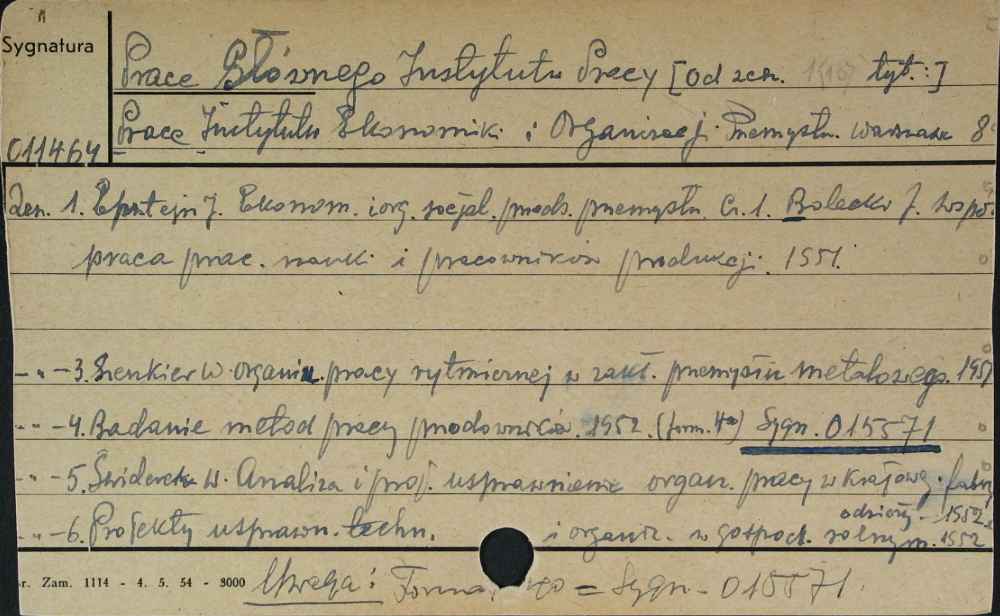 Sygnatura
Prace Głównego Instytutu Pracy [Od zesz. tyt.:]
Prace Instytutu Ekonomiki i Organizacji Przemysłu. Warszawa 8°
011464
Zesz. 1. Epsztejn J. Ekonom. i org. socjal. przeds. przemysłu. Cz. 1. Bolecki J. Współ-
praca prac. nauki i pracowników produkcji. 1951.
-"- 3. Szenkier W. Organiz. pracy rytmicznej w zakł. przemysłu metalowego. 1951
-"- 4. Badanie metod pracy przodowników. 1952. (form. 4°) Sygn. 015571
-"- 5. W. Analiza i proj. usprawnienia organ. pracy w krajowej fabr.
odzieży. 1952.
-"- 6. Projekty usprawn. techn. i organiz. w gospod. rolnym. 1952
r. Zam. 1114 - 4. 5. 54 - 3000
Uwaga: = Sygn. 015571.